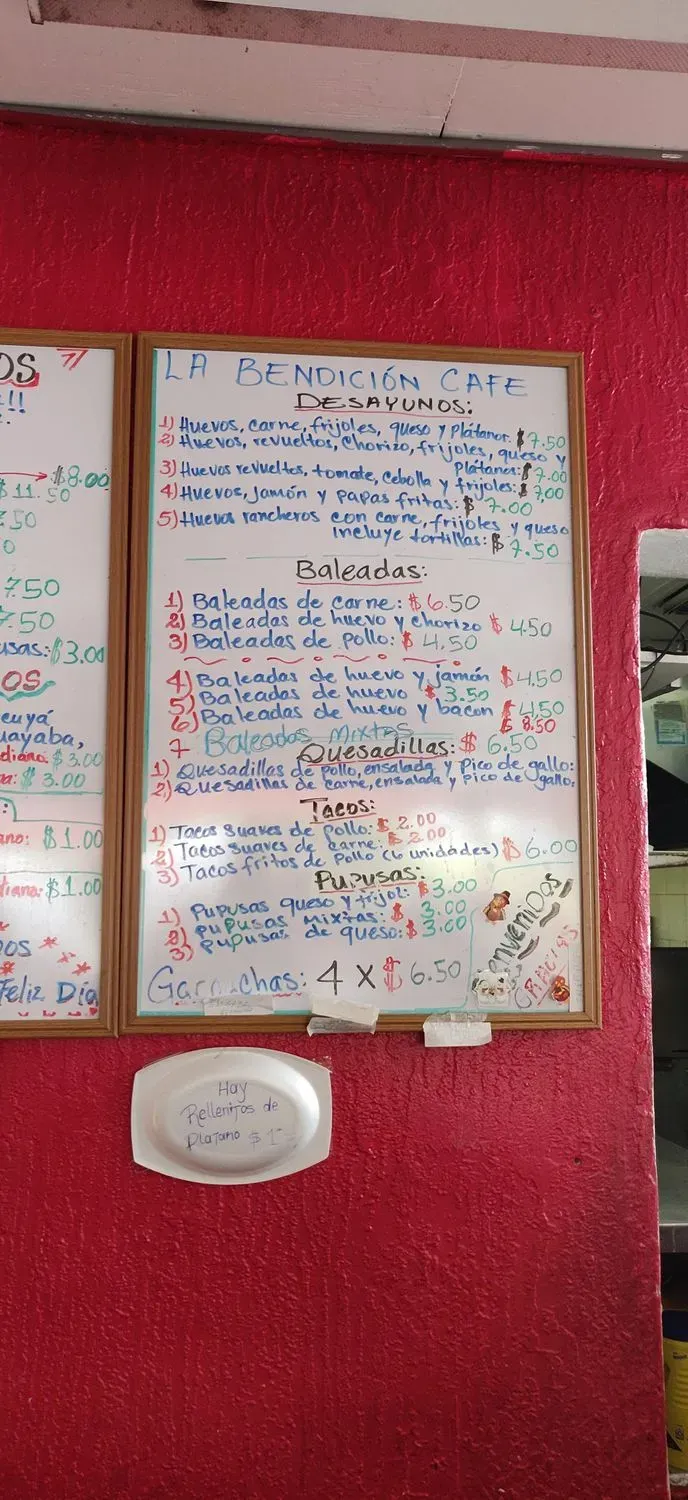 OS
!!
$8.00
$11.50
7.50
7.50
usas: $3.00
OS
cuyá
uayaba,
diana: $3.00
na: $3.00
ano: $1.00
diana: $1.00
DOS
Feliz Día
LA BENDICIÓN CAFE
DESAYUNOS:
1) Huevos, carne, frijoles, queso y Plátanos: $7.50
2) Huevos, revueltos, Chorizo, frijoles, queso y
Plátanos: $7.00
3) Huevos revueltos, tomate, cebolla y frijoles: $7,00
4) Huevos, Jamón y papas fritas: $7.00
5) Huevos rancheros con carne, frijoles y queso
incluye tortillas: $7.50
Baleadas:
1) Baleadas de carne: $6.50
2) Baleadas de huevo y chorizo $4.50
3) Baleadas de pollo: $4.50
4) Baleadas de huevo y jamón $4,50
5) Baleadas de huevo $3.50
6) Baleadas de huevo y bacon $4,50
$8.50
7 Baleadas Mixtas
Quesadillas: $6.50
1) Quesadillas de pollo, ensalada y Pico de gallo:
2) Quesadillas de carne, ensalada y Pico de gallo:
Tacos:
1) Tacos suaves de pollo: $2.00
2) Tacos suaves de carne: $2.00
3) Tacos fritos de Pollo (6 unidades) $6.00
Pupusas:
1) Pupusas queso y frijol: $3.00
2) pupusas Mixtas: $3.00
3) pupusas de queso: $3.00
Garnachas: 4 x $6.50
Bienvenidos
GRACIAS
Hay
Rellenitos de
Platano $1